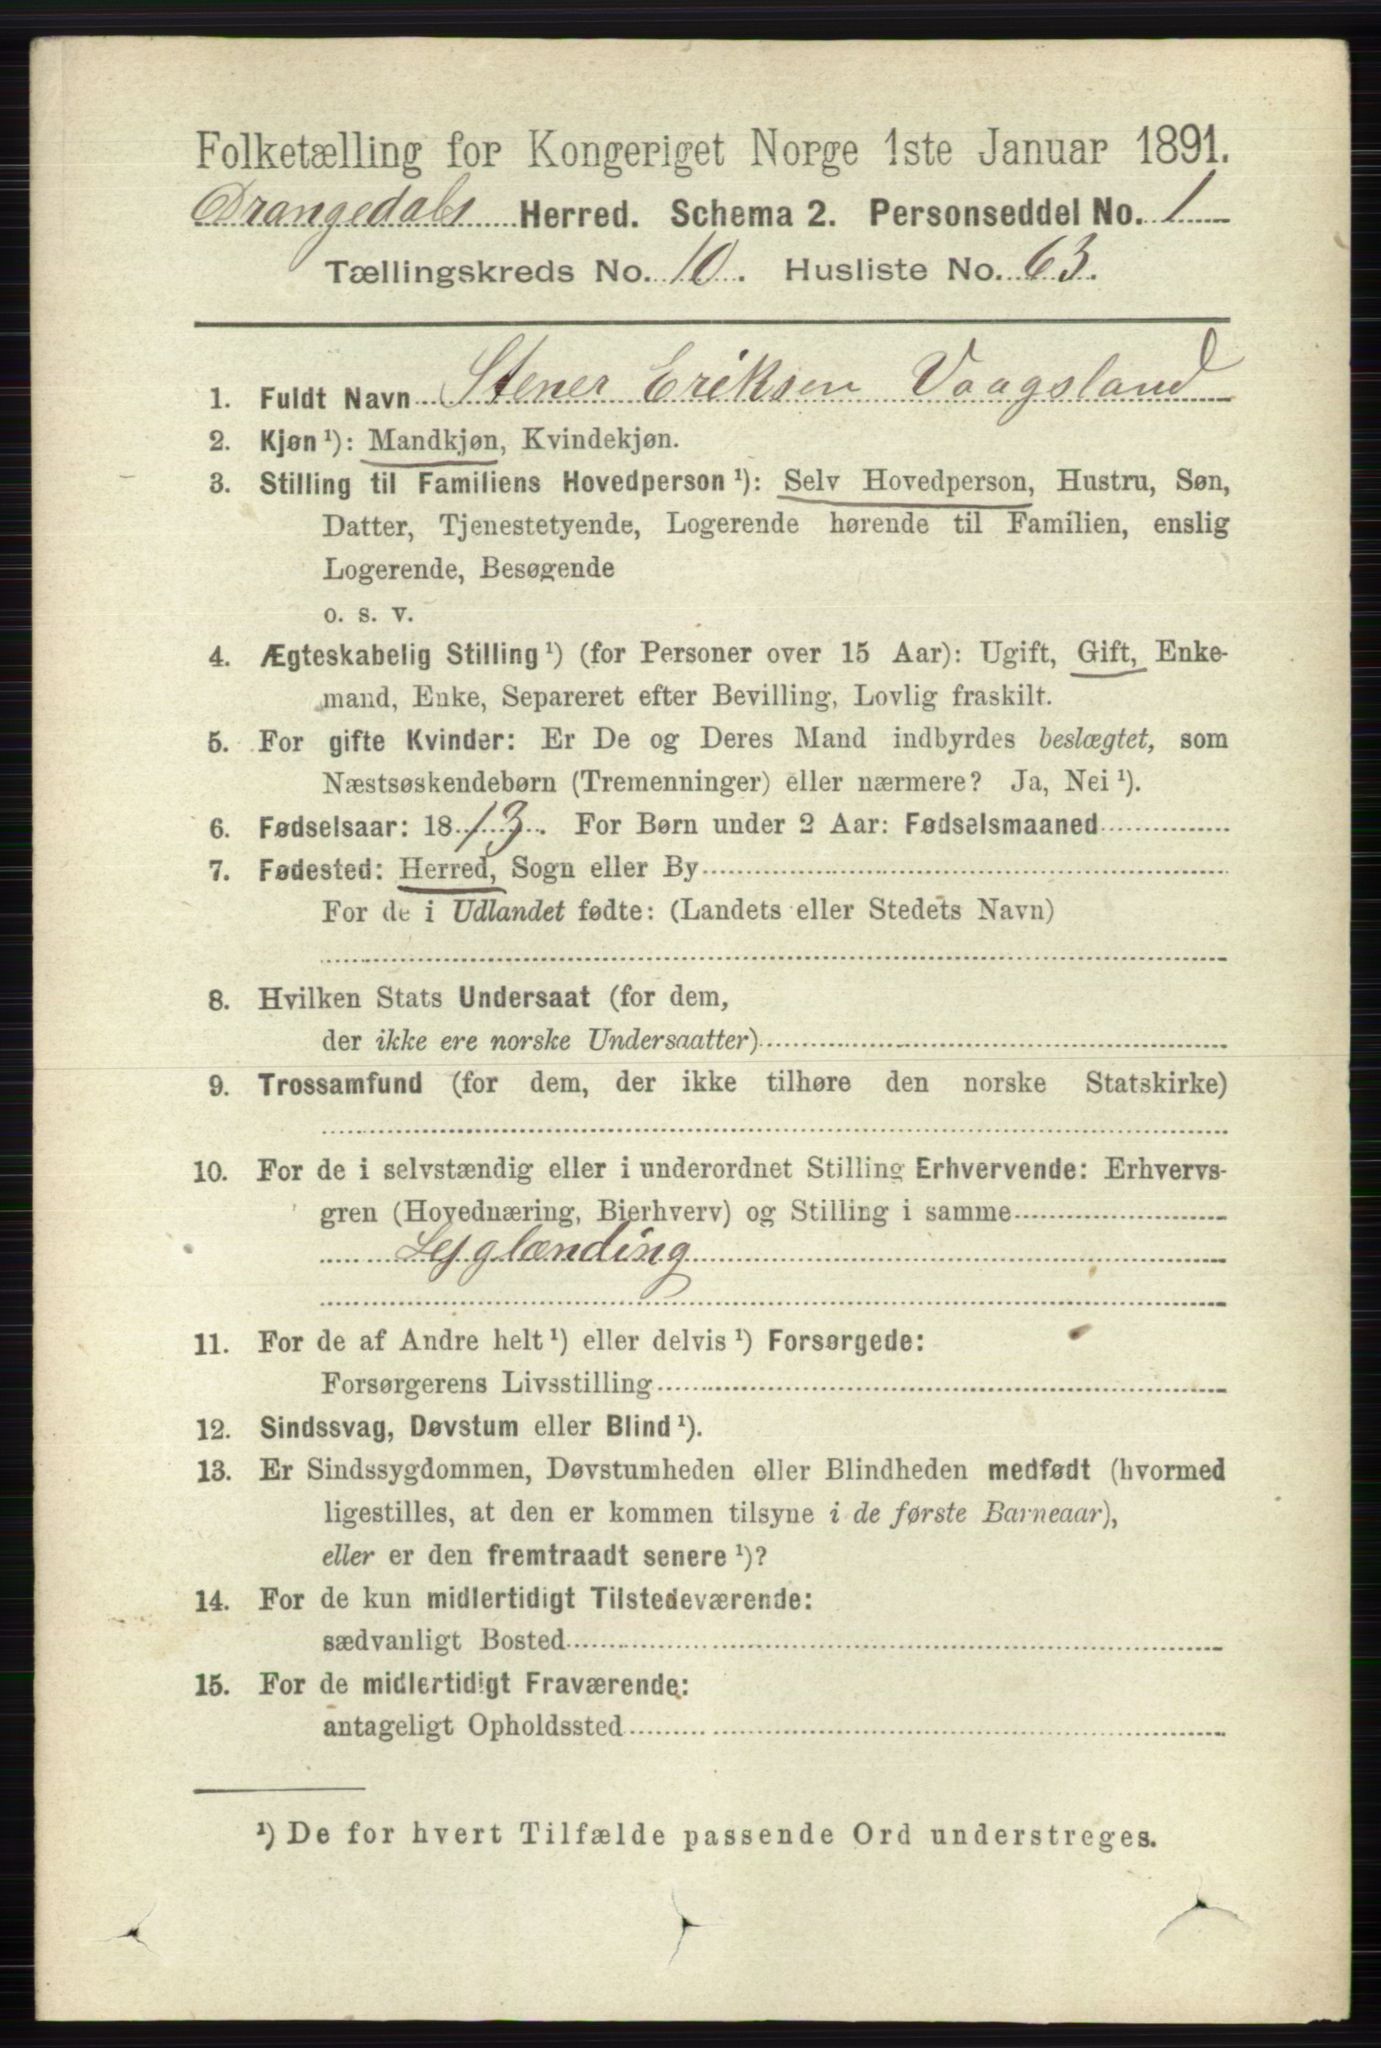 Folketælling for Kongeriget Norge 1ste Januar 1891.
Drangedals Herred. Schema 2. Personseddel No. 1
Tællingskreds No. 10. Husliste No. 63.
1. Fuldt Navn Stener Eriksen Vaagsland
2. Kjøn ¹): Mandkjøn, Kvindekjøn.
3. Stilling til Familiens Hovedperson ¹): Selv Hovedperson, Hustru, Søn,
Datter, Tjenestetyende, Logerende hørende til Familien, enslig
Logerende, Besøgende
o. s. v.
4. Ægteskabelig Stilling ¹) (for Personer over 15 Aar): Ugift, Gift, Enke-
mand, Enke, Separeret efter Bevilling, Lovlig fraskilt.
5. For gifte Kvinder: Er De og Deres Mand indbyrdes beslægtet, som
Næstsøskendebørn (Tremenninger) eller nærmere? Ja, Nei ¹).
6. Fødselsaar: 1813. For Børn under 2 Aar: Fødselsmaaned
7. Fødested: Herred, Sogn eller By
For de i Udlandet fødte: (Landets eller Stedets Navn)
8. Hvilken Stats Undersaat (for dem,
der ikke ere norske Undersaatter)
9. Trossamfund (for dem, der ikke tilhøre den norske Statskirke)
10. For de i selvstændig eller i underordnet Stilling Erhvervende: Erhvervs-
gren (Hovednæring, Bierhverv) og Stilling i samme
Lejglænding
11. For de af Andre helt ¹) eller delvis ¹) Forsørgede:
Forsørgerens Livsstilling
12. Sindssvag, Døvstum eller Blind ¹).
13. Er Sindssygdommen, Døvstumheden eller Blindheden medfødt (hvormed
ligestilles, at den er kommen tilsyne i de første Barneaar),
eller er den fremtraadt senere ¹)?
14. For de kun midlertidigt Tilstedeværende:
sædvanligt Bosted
15. For de midlertidigt Fraværende:
antageligt Opholdssted
¹) De for hvert Tilfælde passende Ord understreges.